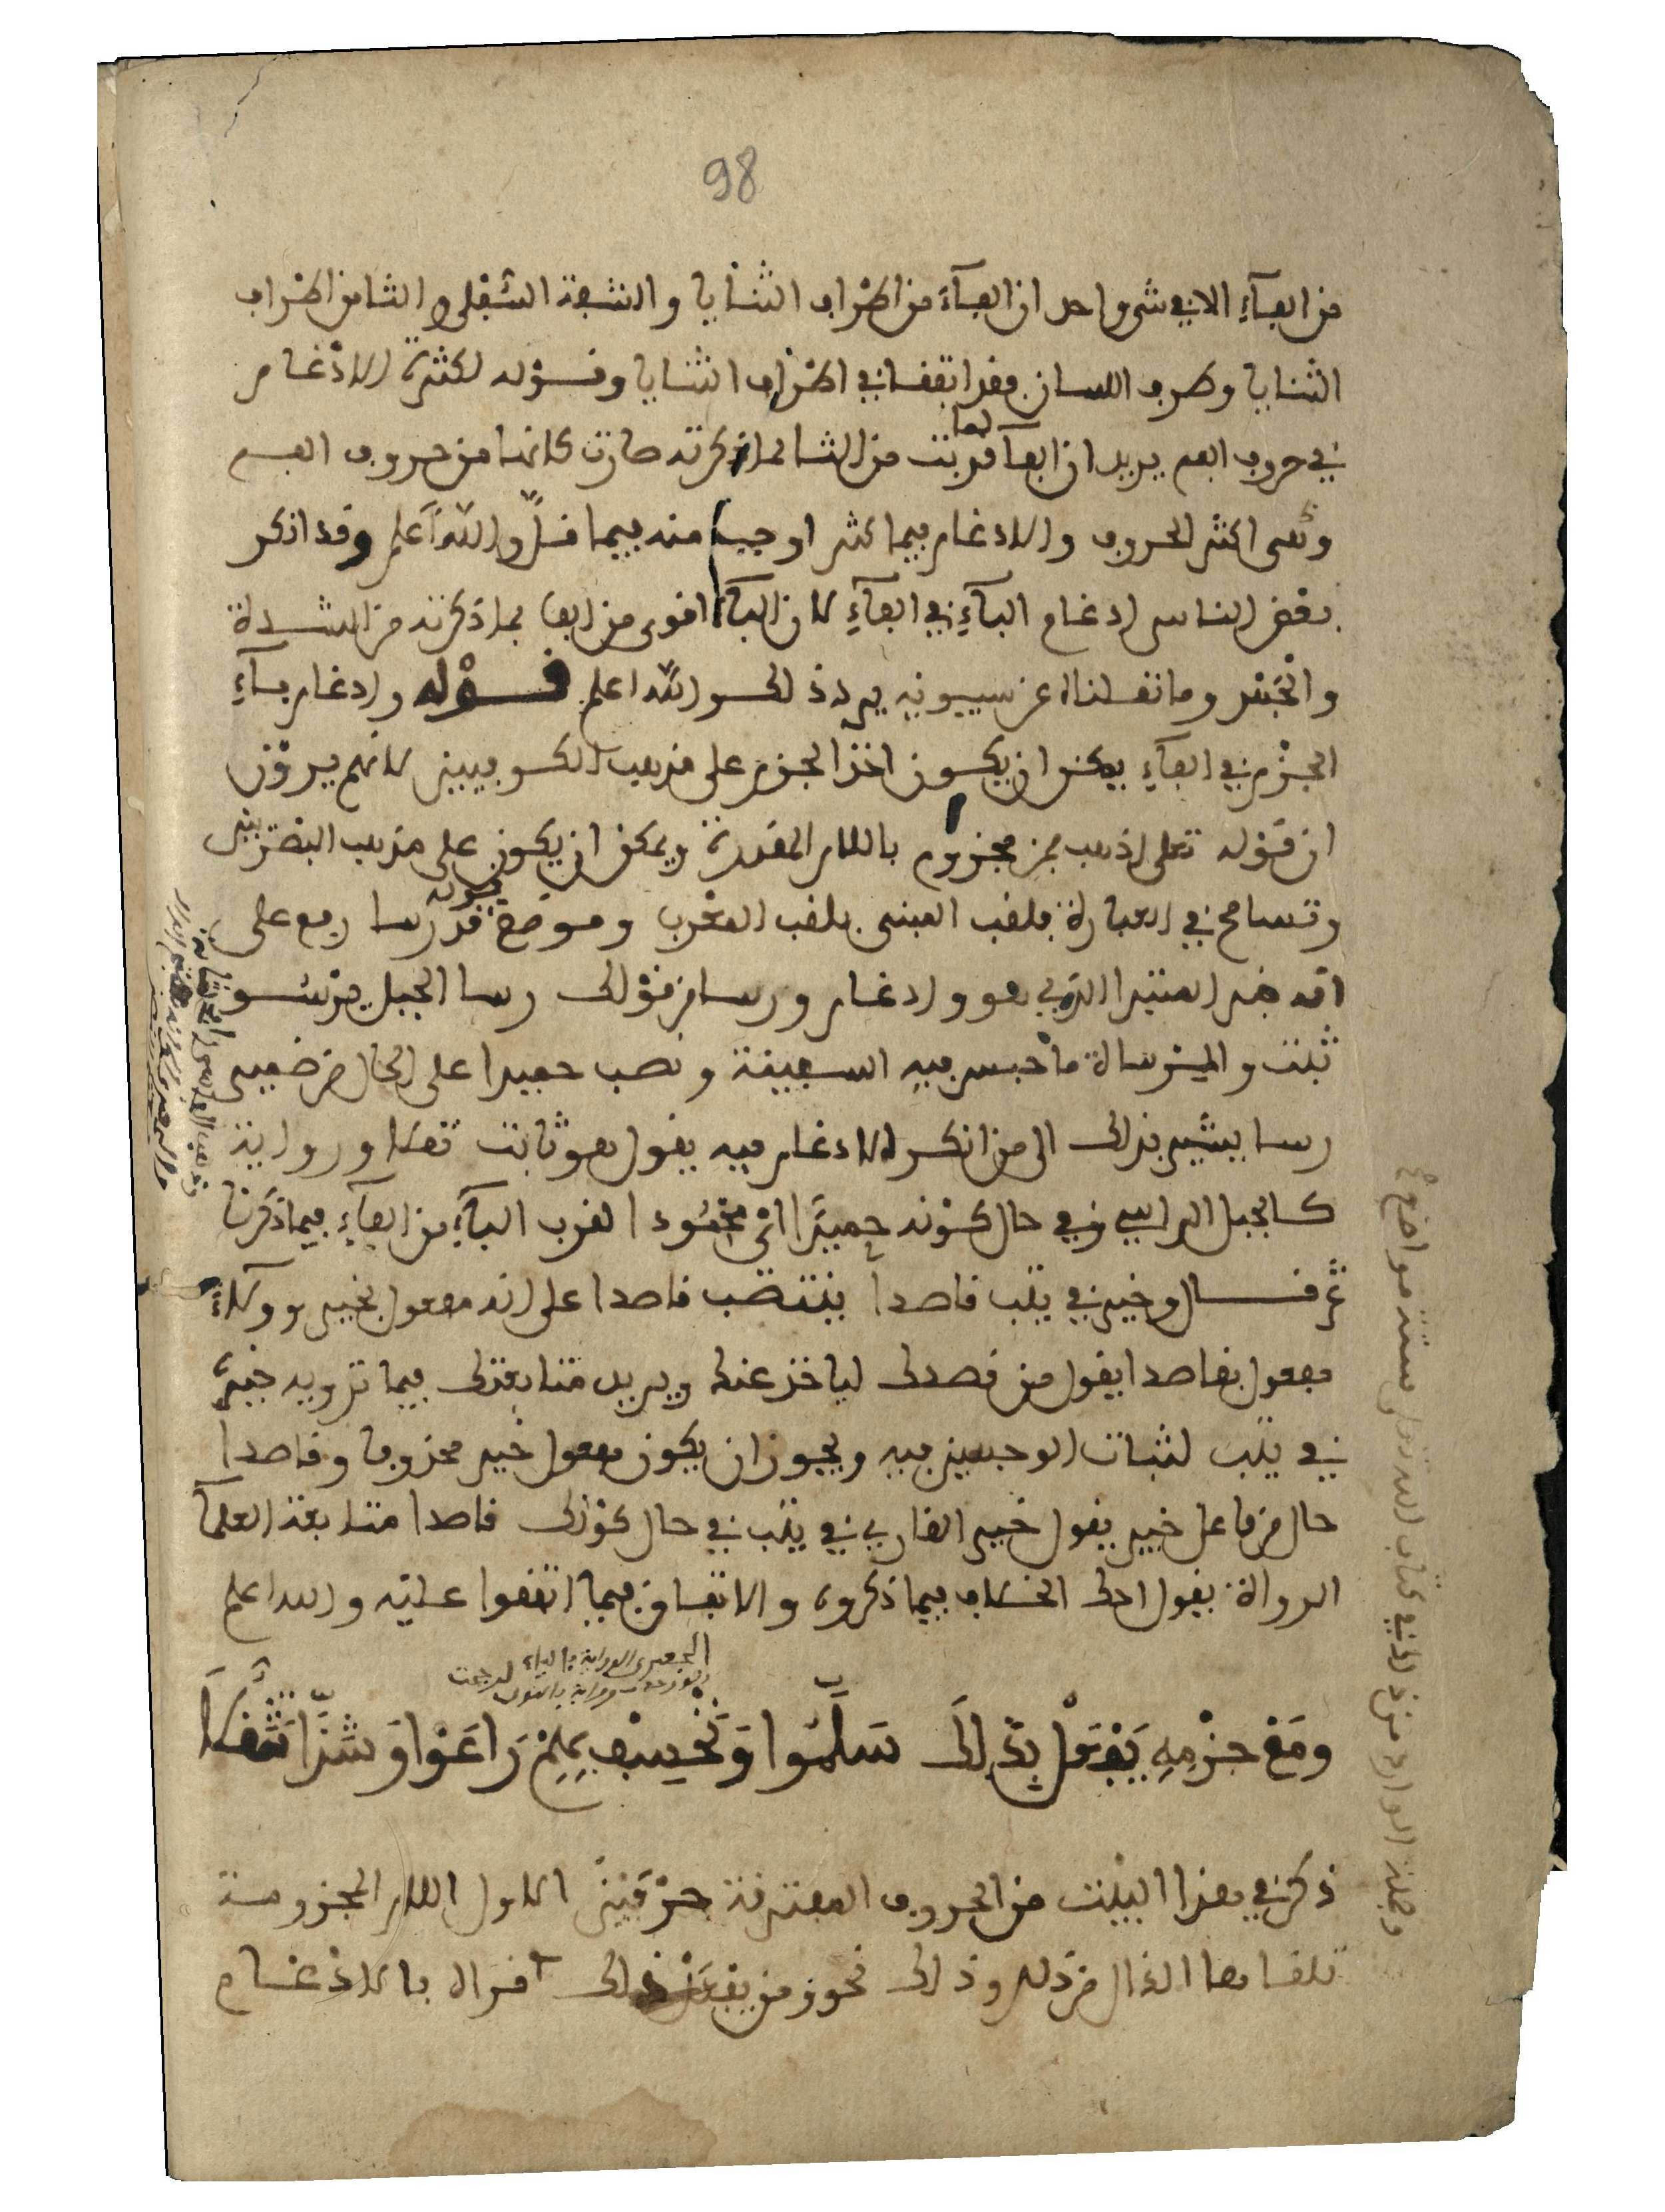 98
من الفآءِ الا في شيء واحد ان الفآءَ من اطراف الثنايا والشفة السفلى والثا من اطراف
الثنايا وطرف اللسان فقد اتفقا في اطراف الثنايا وقوله لكثرة الادغام
في حروف الفم يريد ان الفآ لما قربت من الثا لما ذكرته صارت كانها من حروف الفم
وهى اكثر الحروف والادغام فيما كثر اوجب منه فيما قلّ والله أعلم وقد انكر
بعض الناس ادغام البآءِ في الفآءِ لان البآءَ اقوى من الفا بما ذكرته من الشدة
والجهر وما نقلناه عن سيبويه يرد ذلك والله اعلم قوله وادغام بآءِ
الجزم في الفآءِ يمكن ان يكون اخذ الجزم على مذهب الكوفيين لانهم يرون
ان قوله تعلى اذهب فمن مجزوم باللام المقدرة ويمكن ان يكون على مذهب البصريين
وتسامح في العبارة فلقب المبنى بلقب المعرب وموضع قوله قد رسا رفع على
انه خبر المبتدا الذي هو وادغام ورسا من قولك رسا الجبل يرسو
ثبت والمرساة ما حبس فيه السفينة ونصب حميدا على الحال من ضمير
رسا يشير بذلك الى من انكر الادغام فيه يقول هو ثابت نقلا ورواية
كالجبل الراسي في حال كونه حميدًا اى محمودا لقرب البآءِ من الفآءِ فيما ذكرنا
ثم قال وخير في يتب قاصدا ينتصب قاصدا على انه مفعول بخير وولاَ
مفعول بقاصدا يقول من قصدك لياخذ عنك ويريد متابعتك فيما ترويه خيره
في يتب لثبات الوجهين فيه ويجوز ان يكون مفعول خير محذوفا وقاصدا
حال من فاعل خير يقول خير القاري في يتب في حال كونك قاصدا متابعة العلمآ
الرواة يقول احك الخلاف فيما ذكروه والاتفاق فيما اتفقوا عليه والله اعلم
ومَعْ جزْمِهِ يَفْعَلْ بذلِكَ سَلَّمُوا وَنَخْسِفْ بِهِمْ رَاعَوْا وَشذَّا تَثَقُّلَا
ذكر في هذا البيت من الحروف المفترقة حرفين الاول اللام المجزومة
تلقاها الذال من ذلك وذلك نحو ومن يفعل ذلك قراه بالادغام